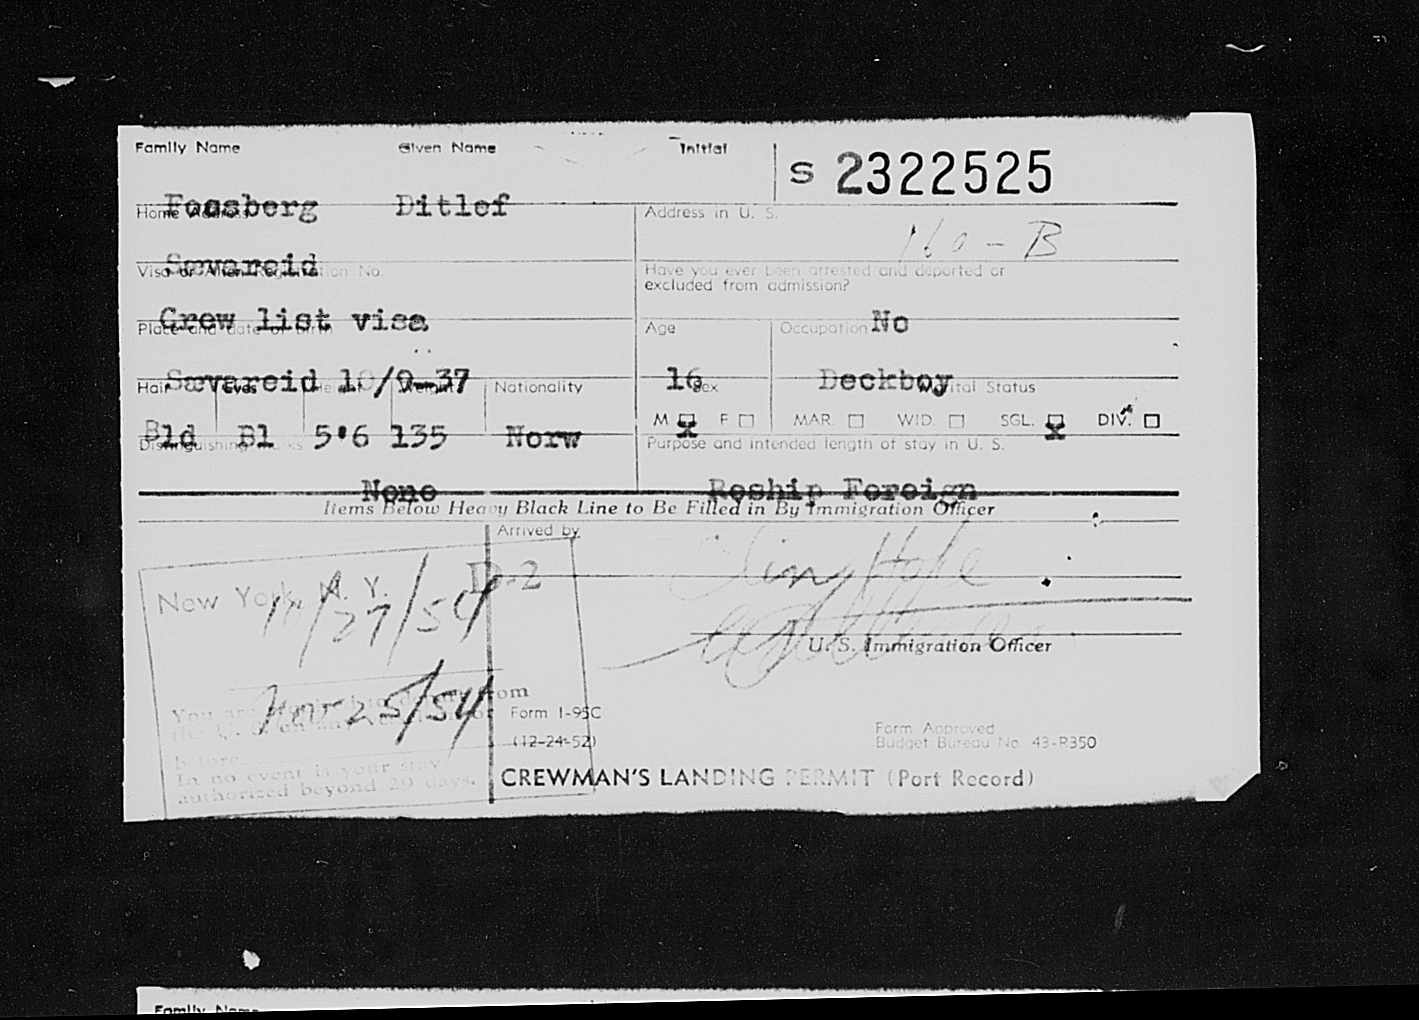 Family Name Given Name Initial
S 2322525
Fossberg Ditlef
Home Address Address in U. S.
160-B
Sævareid
Visa or Alien Registration No. Have you ever been arrested and deported or
excluded from admission?
Crew list visa No
Place and date of birth Age Occupation
Sævareid 10/9-37 16 Deckboy
Hair Eyes Height Weight Nationality Sex Marital Status
M F MAR. WID. SGL. DIV.
Bld Bl 5'6 135 Norw X X
Distinguishing marks Purpose and intended length of stay in U. S.
None Reship Foreign
Items Below Heavy Black Line to Be Filled in By Immigration Officer
Arrived by
New York, N. Y. D-2
10/27/54
U. S. Immigration Officer
Nov 25/54 from
Form I-95C
(12-24-52)
Form Approved
Budget Bureau No. 43-R350
before
In no event is your stay
authorized beyond 29 days.
CREWMAN'S LANDING PERMIT (Port Record)
Family Name